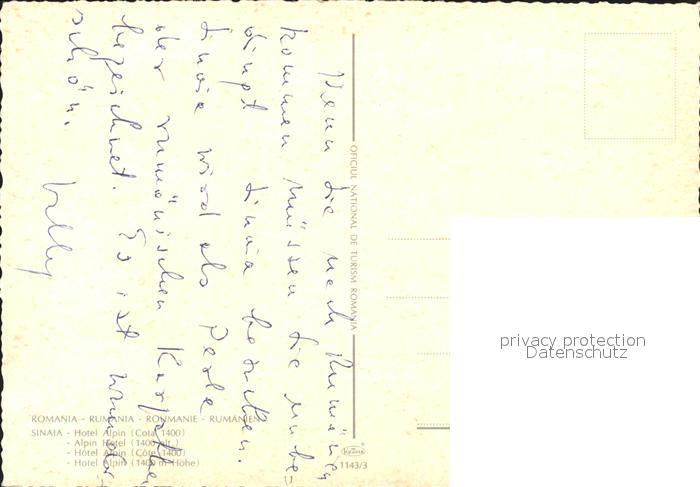 Wenn Sie nach Rumänien
kommen müssen Sie unbe=
dingt Sinaia besuchen.
Sinaia wird als Perle
der rumänischen Karpathen
bezeichnet. Es ist wunder-
schön.
Willy
ROMANIA - RUMANIA - ROUMANIE - RUMÄNIEN
SINAIA - Hotel Alpin (Cota 1400)
- Alpin Hotel (1400 alt.)
- Hôtel Alpin (Côte 1400)
- Hotel Alpin (1400 m Höhe)
OFICIUL NATIONAL DE TURISM ROMANIA
1143/3
privacy protection
Datenschutz